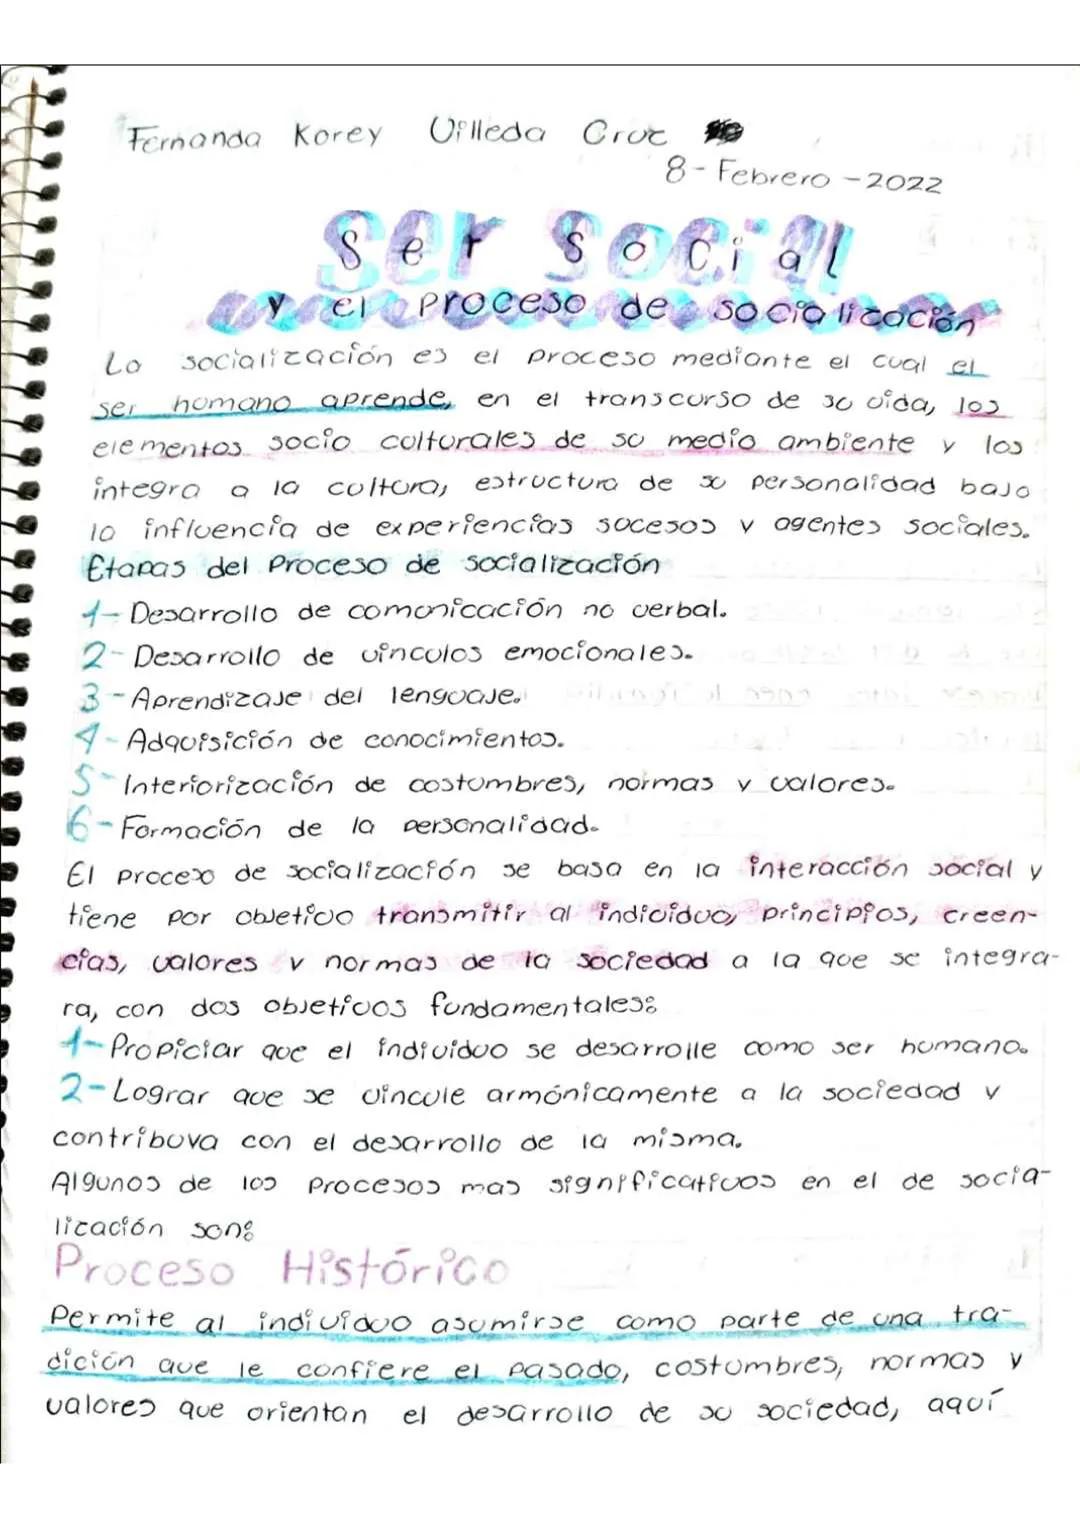 Fernanda Korey Villeda Cruz
8-Febrero-2022
Ser Social
y el proceso de socialización
La socialización es el proceso mediante el cual el
ser humano aprende, en el transcurso de su vida, los
elementos socio culturales de su medio ambiente y los
integra a la cultura, estructura de su personalidad bajo
la influencia de experiencias sucesos y agentes sociales.
Etapas del Proceso de socialización
1-Desarrollo de comunicación no verbal.
2-Desarrollo de vinculos emocionales.
3-Aprendizaje del lenguaje.
4-Adquisición de conocimientos.
5-Interiorización de costumbres, normas y valores.
6-Formación de la personalidad.
El proceso de socialización se basa en la interacción social y
tiene por objetivo transmitir al individuo, principios, creen-
cias, valores y normas de la sociedad a la que se integra-
ra, con dos objetivos fundamentales:
1-Propiciar que el individuo se desarrolle como ser humano.
2-Lograr que se vincule armónicamente a la sociedad y
contribuya con el desarrollo de la misma.
Algunos de los procesos mas significativos en el de socia-
lización son:
Proceso Histórico
Permite al individuo asumirse como parte de una tra-
dición que le confiere el pasado, costumbres, normas y
valores que orientan el desarrollo de su sociedad, aquí